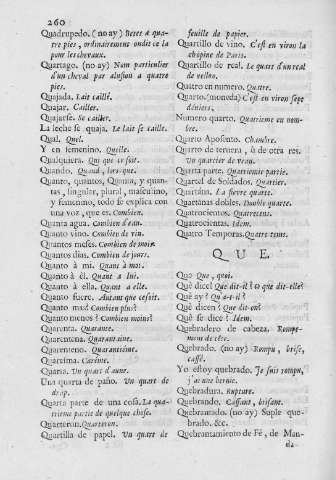 260
Quadrupedo. (no ay) Betes a qua-
tre pies, ordinairement ondit ce la
pour les chevaux.
Quartago. (no ay) Nom particulier
d'un cheval par alusion a quatre
pies.
Quajada. Lait caillé.
Quajar. Cailler.
Quajarse. Se cailler.
La leche se quaja. Le lait se caille.
Qual. Quel.
Y en femenino. Quelle.
Qualquiera. Qui que ce soit.
Quando. Quand, lors que.
Quanto, quantos, Quanta, y quan-
tas, singular, plural, masculino,
y femenino, todo se explica con
una voz, que es. Combien.
Quanta agua. Combien d'eau.
Quanto vino. Combien de vin.
Quantos meses. Combien de mois.
Quantos dias. Combien de jours.
Quanto à mi. Quant à moi.
Quanto à él. Quant a lui.
Quanto à ella. Quant a elle.
Quanto fuere. Autant que ce soit.
Quanto mas? Combien plus?
Quanto menos? Combien moins?
Quarenta. Quarante.
Quarentena. Quarantaine.
Quarenteno. Quarantiéme.
Quaresma. Carême.
Quarta. Un quart d'aune.
Una quarta de paño. Un quart de
drap.
Quarta parte de una cosa. La qua-
trieme partie de quelque chose.
Quarteron. Quarteron.
Quartilla de papel. Un quart de
feuille de papier.
Quartillo de vino. C'est en viron la
chopine de Paris.
Quartillo de real. Le quart d'un real
de vellon.
Quatro en numero. Quatre.
Quarto. (moneda) C'est en viron sept
deniers.
Numero quarto. Quatrieme en nom-
bre.
Quarto Aposento. Chambre.
Quarto de ternera, ò de otra res.
Un quartier de veau.
Quarta parte. Quartriemie partie.
Quartel de Soldados. Quartier.
Quartana. La fievre quarte.
Quartanas dobles. Double quarte.
Quatrocientos. Quatrecens.
Quatrocientas. Idem.
Quatro Temporas. Quatre tems.
QUE
Que Que, quoi.
Què dice? Que dit-il? o què dit-elle?
Què ay? Qu'a-t-il?
Què dicen? Que dit-on?
Què se dice? Idem.
Quebradero de cabeza. Rompe-
ment de tête.
Quebrado. (no ay) Rompu, brise,
cassé.
Yo estoy quebrado. Je suis rompu,
j'ai une hernie.
Quebradura. Rupture.
Quebrando. Cassant, brisant.
Quebrantado. (no ay) Suple que-
brado. &c.
Quebrantamiento de Fé, de Man-
da-